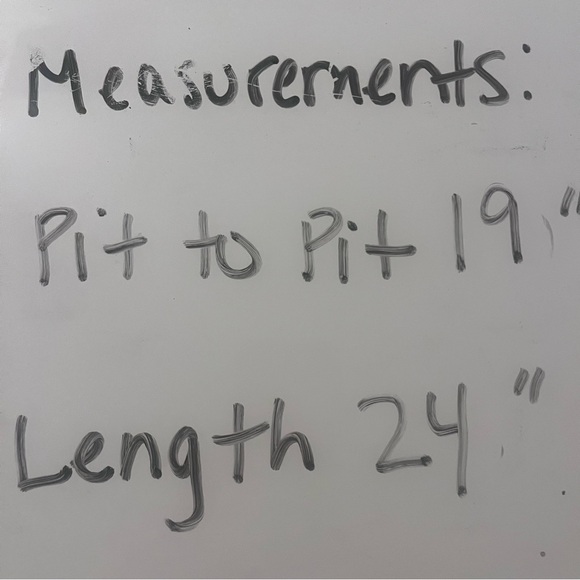 Measurements:
Pit to Pit 19"
Length 24"